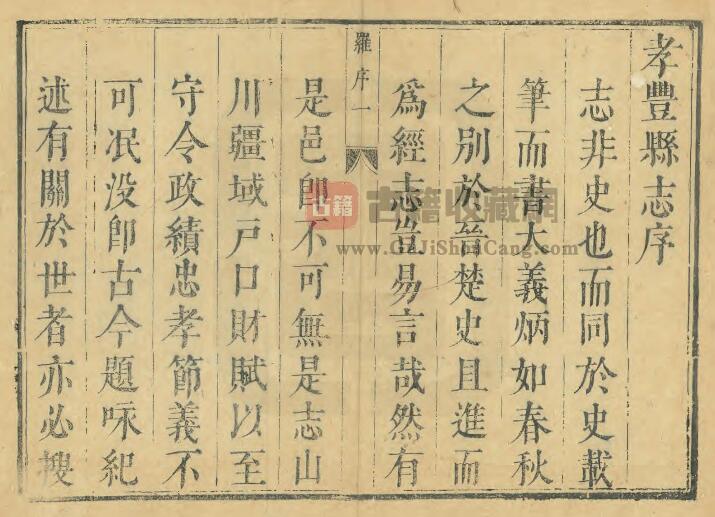 孝豐縣志序
志非史也而同於史載
筆而書大義炳如春秋
之別於晉楚史且進而
爲經志豈易言哉然有
羅序一
是邑卽不可無是志山
川疆域戸口財賦以至
守令政績忠孝節義不
可泯没卽古今題咏紀
述有關於世者亦必搜
古籍
古籍收藏網
www.GuJiShouCang.com